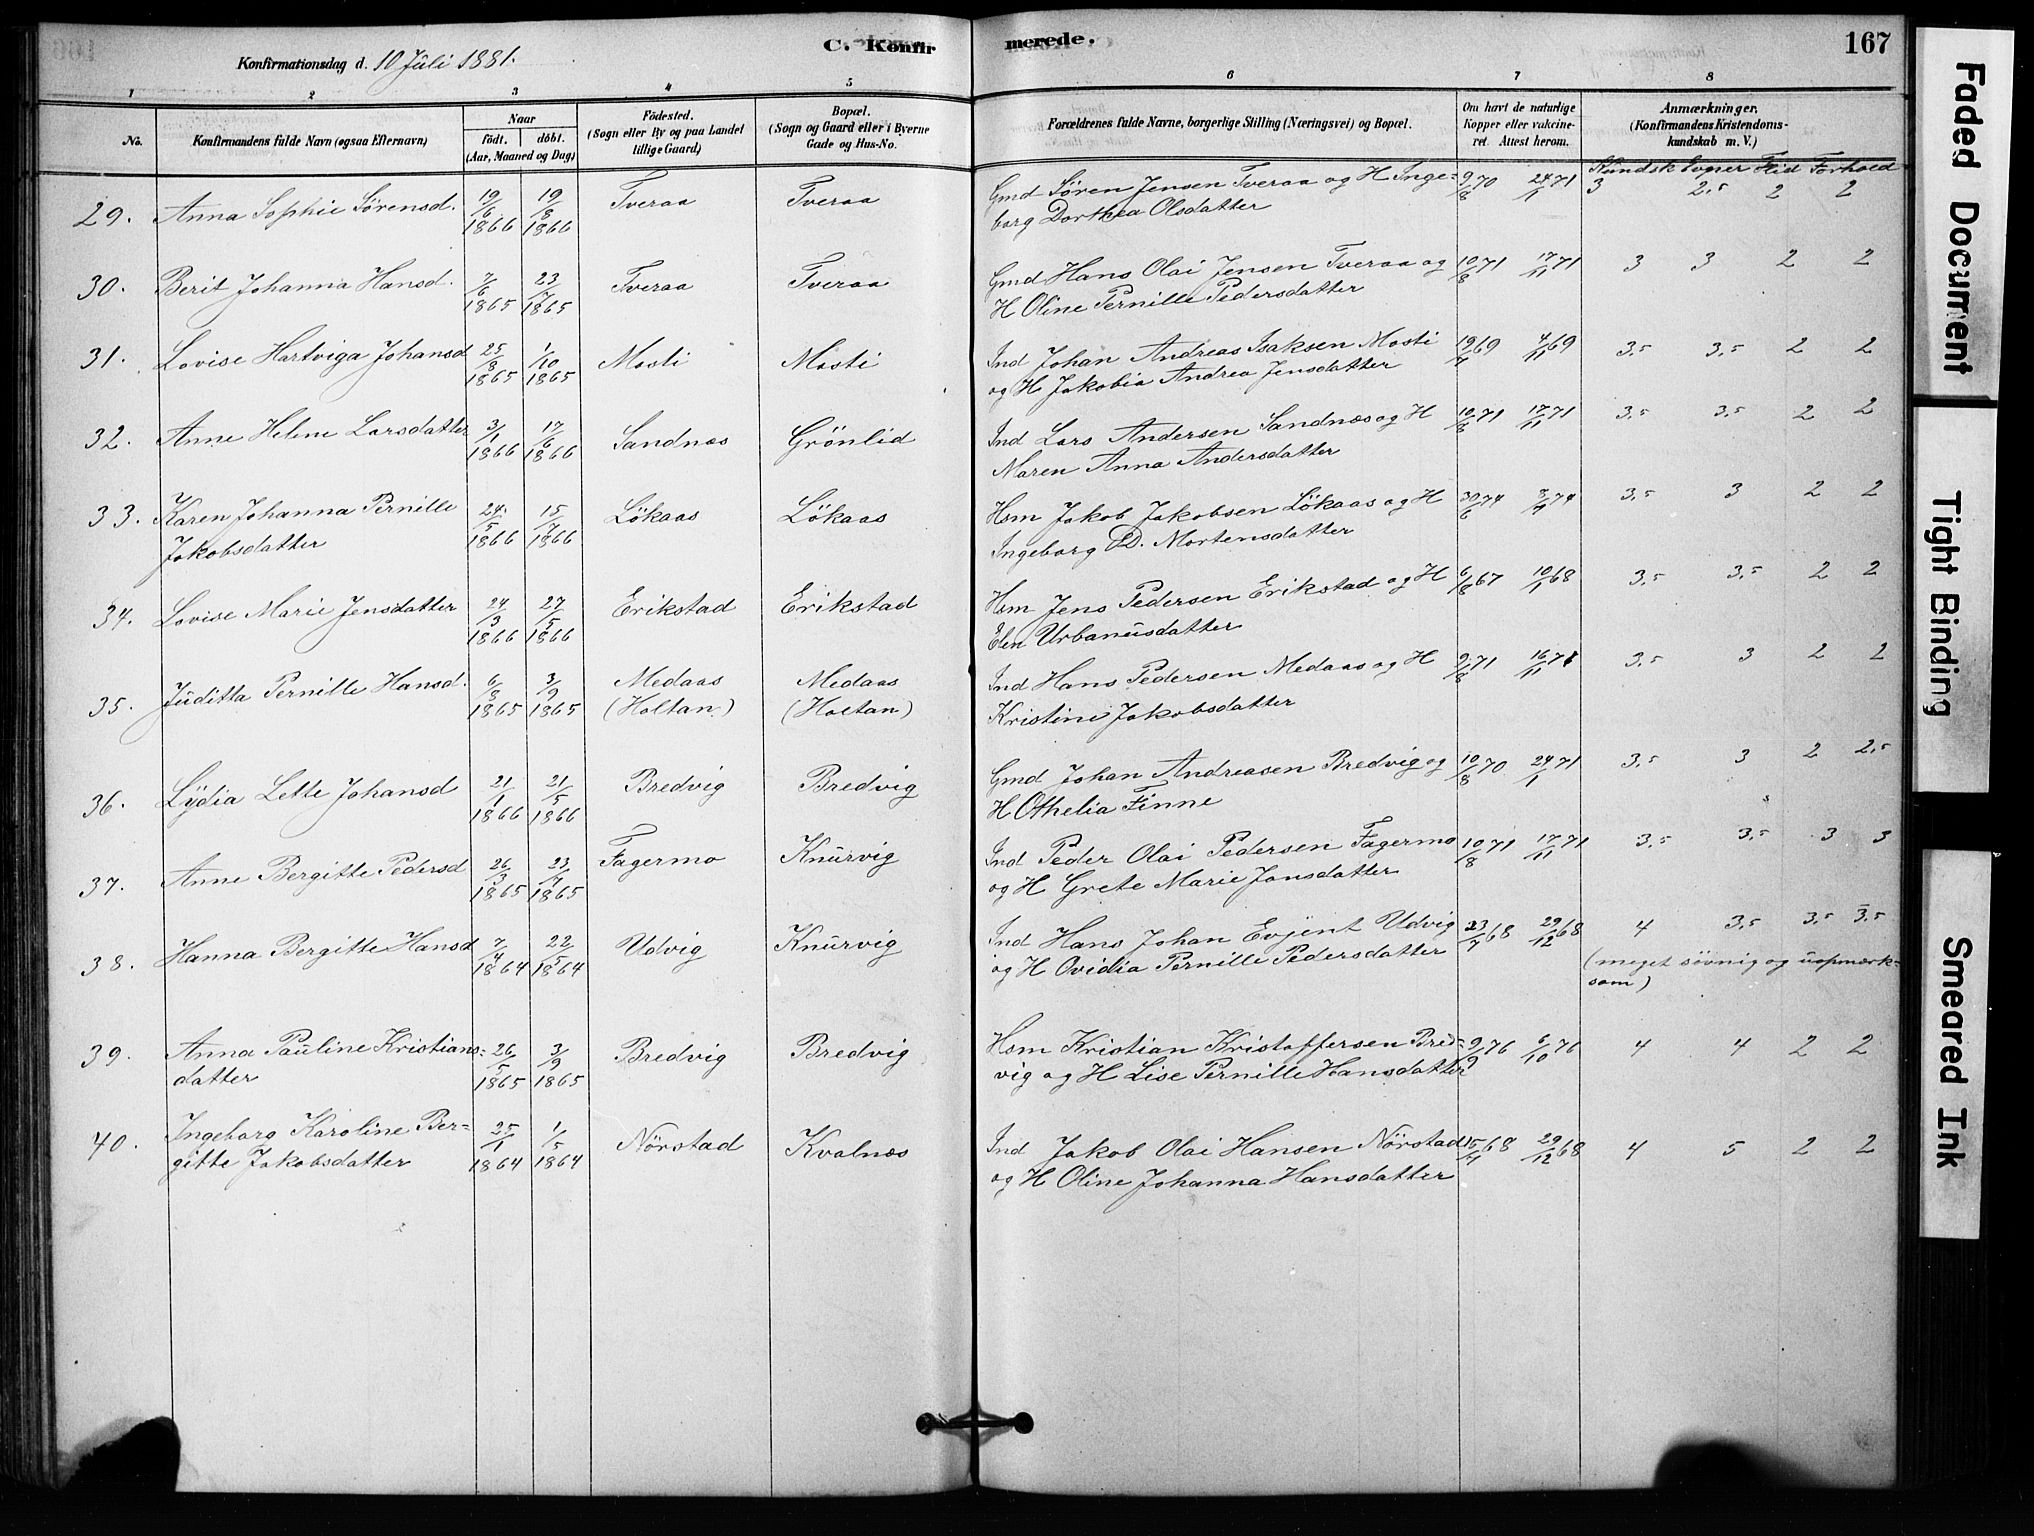 C. Konfirmerede. 167
Konfirmationsdag d. 10 Juli 1881.
1 2 3 4 5 6 7 8
No.
Konfirmandens fulde Navn (ogsaa Efternavn)
Naar
födt. döbt.
(Aar, Maaned og Dag)
Födested.
(Sogn eller By og paa Landet
tillige Gaard)
Bopæl.
(Sogn og Gaard eller i Byerne
Gade og Hus-No.
Forældrenes fulde Navne, borgerlige Stilling (Næringsvei) og Bopæl.
Om havt de naturlige
Kopper eller vakcine-
ret. Attest herom.
Anmærkninger.
(Konfirmandens Kristendoms-
kundskab m. V.)
Kundsk Evner Flid Forhold
29. Anna Sophie Sörensd. 19/6 1866 19/8 1866 Tveraa Tveraa Gmd Sören Jensen Tveraa og H Inge- 9/8 70 24/1 71 3 2,5 2 2
borg Dorthea Olsdatter
30. Berit Johanna Hansd. 7/6 1865 23/7 1865 Tveraa Tveraa Gmd Hans Olai Jensen Tveraa og 10/8 71 17/11 71 3 3 2 2
H Oline Pernille Pedersdatter
31. Lovise Hartviga Johansd 25/8 1865 1/10 1865 Mosti Mosti Ind Johan Andreas Isaksen Mosti 19/7 69 4/11 69 3,5 3,5 2 2
og H Jakobia Andrea Jensdatter
32. Anne Helene Larsdatter 3/1 1866 17/6 1866 Sandnæs Grönlid Ind Lars Andersen Sandnæs og H 10/8 71 17/11 71 3,5 3,5 2 2
Maren Anna Andersdatter
33. Karen Johanna Pernille 24/5 1866 15/7 1866 Lökaas Lökaas Hsm Jakob Jakobsen Lökaas og H 30/6 74 74 3,5 3 2 2
Jakobsdatter Ingeborg D. Mortensdatter
34. Lovise Marie Jensdatter 24/3 1866 27/5 1866 Erikstad Erikstad Hsm Jens Pedersen Erikstad og H 6/8 67 10/1 68 3,5 3,5 2 2
Elen Urbanusdatter
35. Juditta Pernille Hansd. 6/8 1865 3/9 1865 Medaas Medaas Ind Hans Pedersen Medaas og H 9/8 71 16/11 71 3,5 3 2 2
(Holtan) (Holtan) Kristine Jakobsdatter
36. Lydia Lette Johansd 21/1 1866 21/5 1866 Bredvig Bredvig Gmd Johan Andreasen Bredvig og 10/8 70 24/1 71 3,5 3 2 2,5
H Othelia Finne
37. Anne Bergitte Pedersd 26/3 1865 23/4 1865 Fagermo Knurvig Ind Peder Olai Pedersen Fagermo 10/8 71 17/11 71 3,5 3,5 3 3
og H Grete Marie Jonsdatter
38. Hanna Bergitte Hansd 7/4 1864 22/5 1864 Udvig Knurvig Ind Hans Johan Evjent Udvig 23/7 68 29/12 68 4 3,5 3,5 3,5
og H Ovidia Pernille Pedersdatter (meget sövnig og uopmærk-
som)
39. Anna Pauline Kristians- 26/5 1865 3/9 1865 Bredvig Bredvig Hsm Kristian Kristoffersen Bred- 9/9 76 6/10 76 4 4 2 2
datter vig og H Lise Pernille Hansdatter
40. Ingeborg Karoline Ber- 25/1 1864 1/5 1864 Nörstad Kvalnæs Ind Jakob Olai Hansen Nörstad 68 29/12 68 4 5 2 2
gitte Jakobsdatter og H Oline Johanna Hansdatter
Faded Document
Tight Binding
Smeared Ink